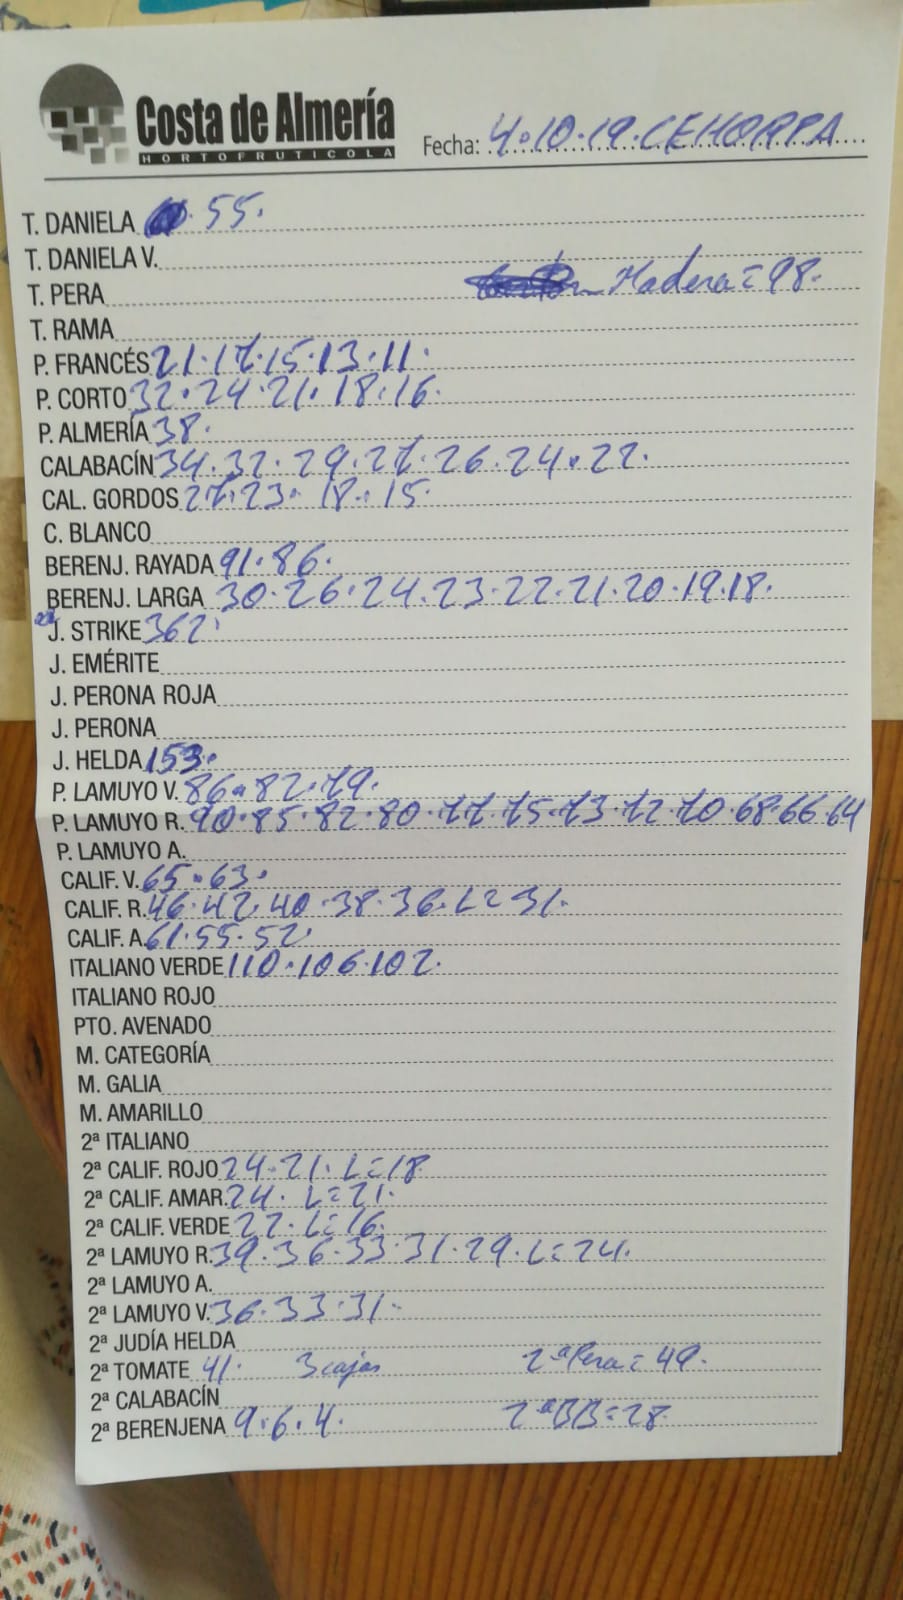 Costa de Almería
HORTOFRUTICOLA
Fecha: 4.10.19.CEHORPA
T. DANIELA 55.
T. DANIELA V.
T. PERA Madera = 98.
T. RAMA
P. FRANCÉS 21.17.15.13.11.
P. CORTO 32.24.21.18.16.
P. ALMERÍA 38.
CALABACÍN 34.32.29.27.26.24.22.
CAL. GORDOS 27.23.18.15.
C. BLANCO
BERENJ. RAYADA 91.86.
BERENJ. LARGA 30.26.24.23.22.21.20.19.18.
J. STRIKE 362.
J. EMÉRITE
J. PERONA ROJA
J. PERONA
J. HELDA 153.
P. LAMUYO V. 86.82.79.
P. LAMUYO R. 90.85.82.80.77.75.73.72.70.68.66.64
P. LAMUYO A.
CALIF. V. 65.63.
CALIF. R. 46.42.40.38.36.L=31.
CALIF. A. 61.55.52.
ITALIANO VERDE 110.106.102.
ITALIANO ROJO
PTO. AVENADO
M. CATEGORÍA
M. GALIA
M. AMARILLO
2ª ITALIANO
2ª CALIF. ROJO 24.21.L=18
2ª CALIF. AMAR. 24.L=21.
2ª CALIF. VERDE 22.L=16.
2ª LAMUYO R. 39.36.33.31.29.L=24.
2ª LAMUYO A.
2ª LAMUYO V. 36.33.31.
2ª JUDÍA HELDA
2ª TOMATE 41. 3 cajas 2ª Pera = 49.
2ª CALABACÍN
2ª BERENJENA 9.6.4. 2ª BB = 28